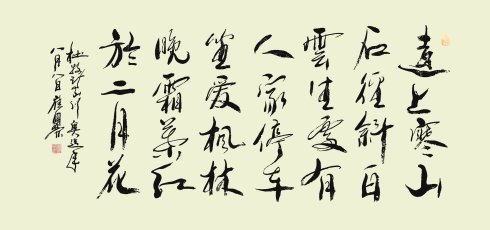 遠上寒山
石徑斜白
雲生處有
人家停車
坐愛楓林
晚霜葉紅
於二月花
杜牧詩山行
八月